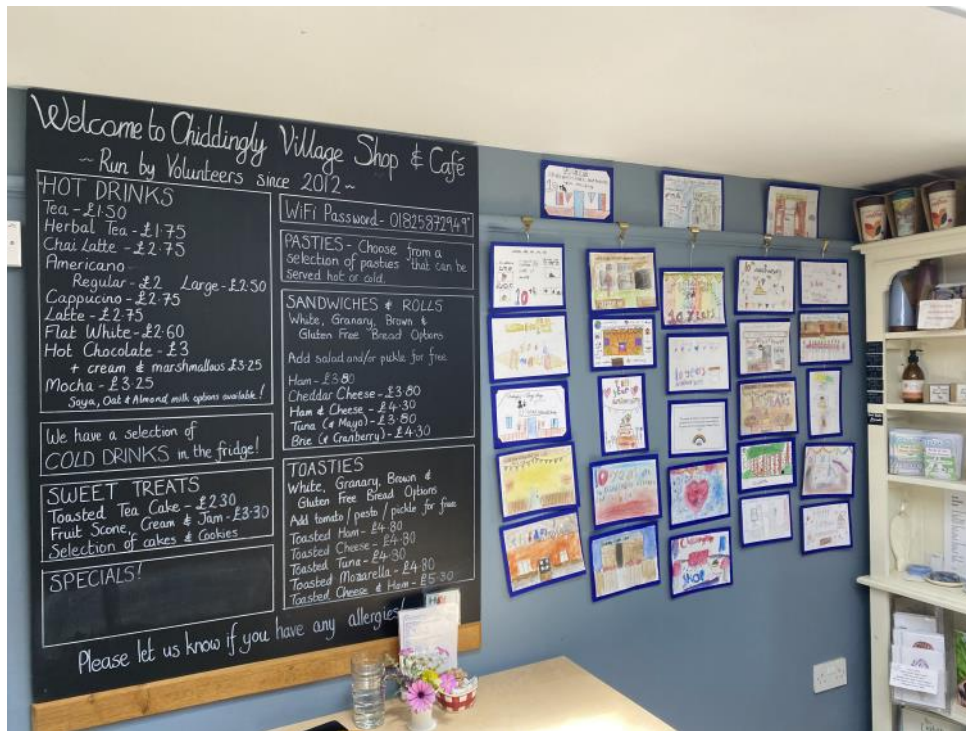 Welcome to Chiddingly Village Shop & Café
~ Run by Volunteers since 2012 ~
HOT DRINKS
Tea - £1.50
Herbal Tea - £1.75
Chai Latte - £2.75
Americano -
Regular - £2 Large - £2.50
Cappucino - £2.75
Latte - £2.75
Flat White - £2.60
Hot Chocolate - £3
+ cream & marshmallows £3.25
Mocha - £3.25
Soya, Oat & Almond milk options available!
We have a selection of
COLD DRINKS in the fridge!
SWEET TREATS
Toasted Tea Cake - £2.30
Fruit Scone, Cream & Jam - £3.30
Selection of cakes & Cookies
SPECIALS!
WiFi Password - 01825872949
PASTIES - Choose from a
selection of pasties that can be
served hot or cold.
SANDWICHES & ROLLS
White, Granary, Brown &
Gluten Free Bread Options
Add salad and/or pickle for free
Ham - £3.80
Cheddar Cheese - £3.80
Ham & Cheese - £4.30
Tuna (& Mayo) - £3.80
Brie (& Cranberry) - £4.30
TOASTIES
White, Granary, Brown &
Gluten Free Bread Options
Add tomato / pesto / pickle for free
Toasted Ham - £4.80
Toasted Cheese - £4.80
Toasted Tuna - £4.80
Toasted Mozarella - £4.80
Toasted Cheese & Ham - £5.30
Please let us know if you have any allergies!
10 years
SHOP